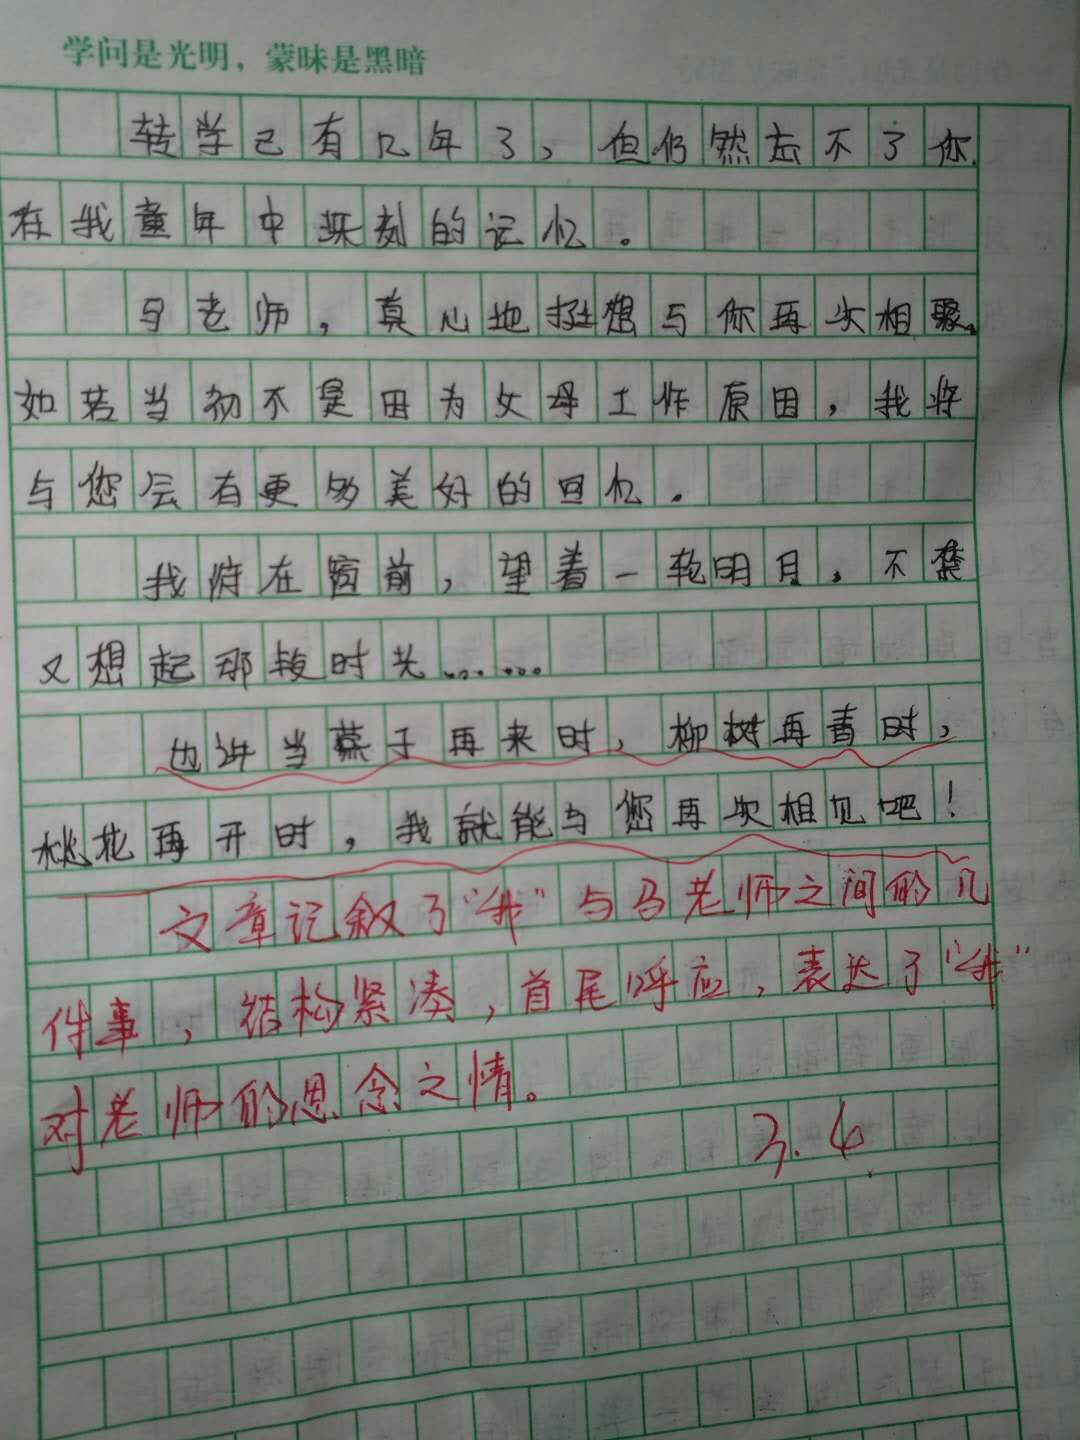 学问是光明，蒙昧是黑暗
转学已有几年了，但仍然忘不了你
在我童年中深刻的记忆。
马老师，真心地挺想与你再次相聚。
如若当初不是因为父母工作原因，我将
与您会有更多美好的回忆。
我将在窗前，望着一轮明月，不禁
又想起那段时光……
也许当燕子再来时，柳树再青时，
桃花再开时，我就能与您再次相见吧！
文章记叙了“我”与马老师之间的几
件事，结构紧凑，首尾呼应，表达了“我”
对老师的思念之情。
3.4